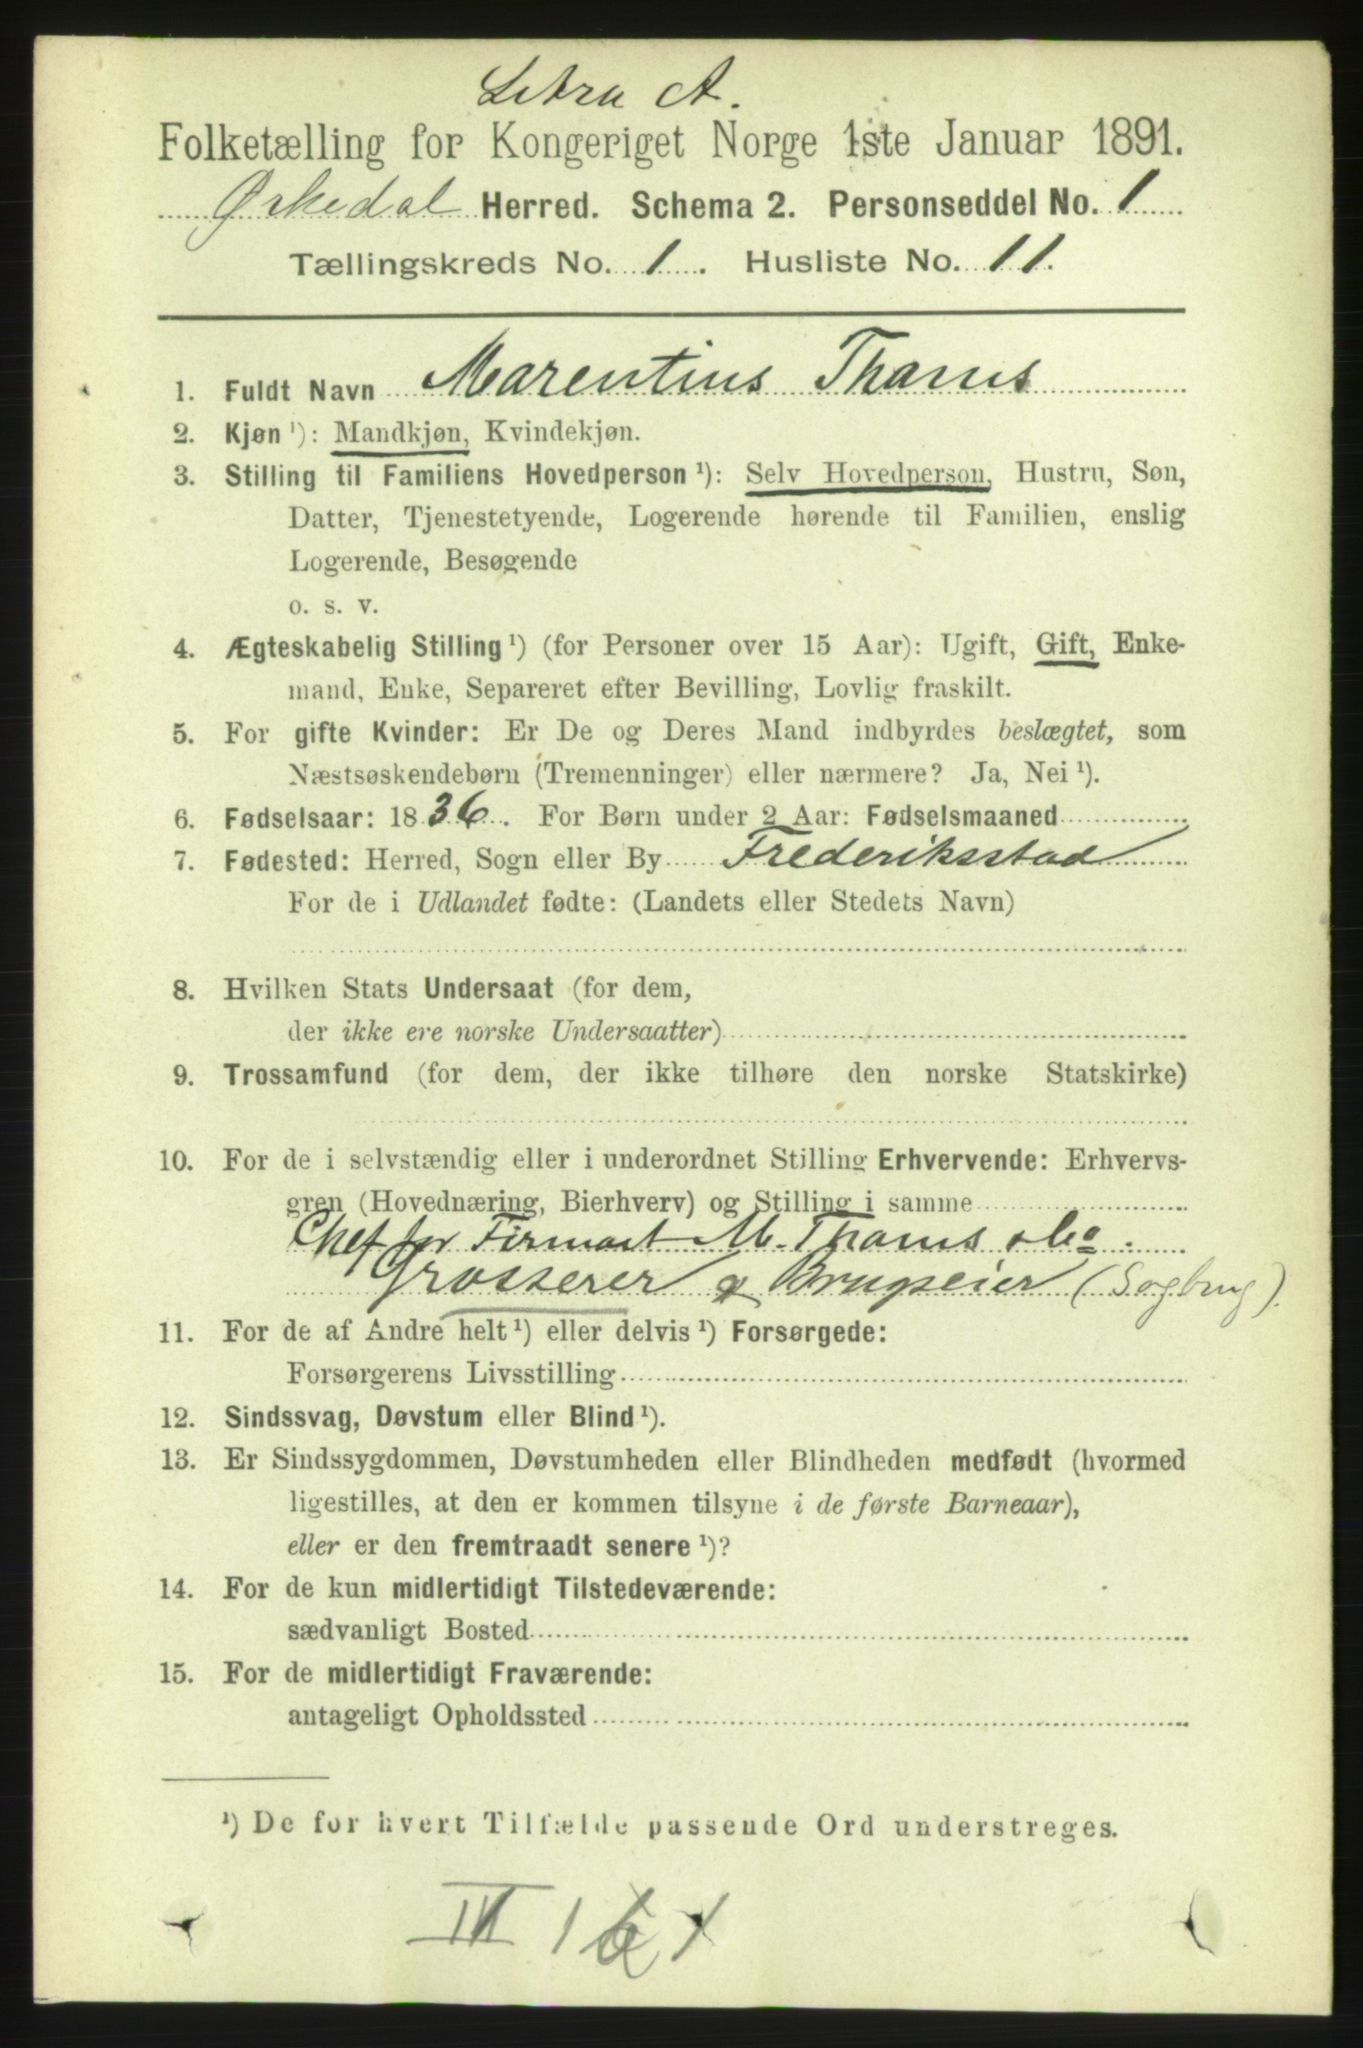 Litra A.
Folketælling for Kongeriget Norge 1ste Januar 1891.
Ørkedal Herred. Schema 2. Personseddel No. 1
Tællingskreds No. 1. Husliste No. 11.
1. Fuldt Navn Marentius Thams
2. Kjøn ¹): Mandkjøn, Kvindekjøn.
3. Stilling til Familiens Hovedperson ¹): Selv Hovedperson, Hustru, Søn,
Datter, Tjenestetyende, Logerende hørende til Familien, enslig
Logerende, Besøgende
o. s. v.
4. Ægteskabelig Stilling ¹) (for Personer over 15 Aar): Ugift, Gift, Enke-
mand, Enke, Separeret efter Bevilling, Lovlig fraskilt.
5. For gifte Kvinder: Er De og Deres Mand indbyrdes beslægtet, som
Næstsøskendebørn (Tremenninger) eller nærmere? Ja, Nei ¹).
6. Fødselsaar: 1836. For Børn under 2 Aar: Fødselsmaaned
7. Fødested: Herred, Sogn eller By Frederiksstad
For de i Udlandet fødte: (Landets eller Stedets Navn)
8. Hvilken Stats Undersaat (for dem,
der ikke ere norske Undersaatter)
9. Trossamfund (for dem, der ikke tilhøre den norske Statskirke)
10. For de i selvstændig eller i underordnet Stilling Erhvervende: Erhvervs-
gren (Hovednæring, Bierhverv) og Stilling i samme
Chef for Firmaet M. Thams & Co.
Grosserer & Brugseier (Sagbrug).
11. For de af Andre helt ¹) eller delvis ¹) Forsørgede:
Forsørgerens Livsstilling
12. Sindssvag, Døvstum eller Blind ¹).
13. Er Sindssygdommen, Døvstumheden eller Blindheden medfødt (hvormed
ligestilles, at den er kommen tilsyne i de første Barneaar),
eller er den fremtraadt senere ¹)?
14. For de kun midlertidigt Tilstedeværende:
sædvanligt Bosted
15. For de midlertidigt Fraværende:
antageligt Opholdssted
¹) De for hvert Tilfælde passende Ord understreges.